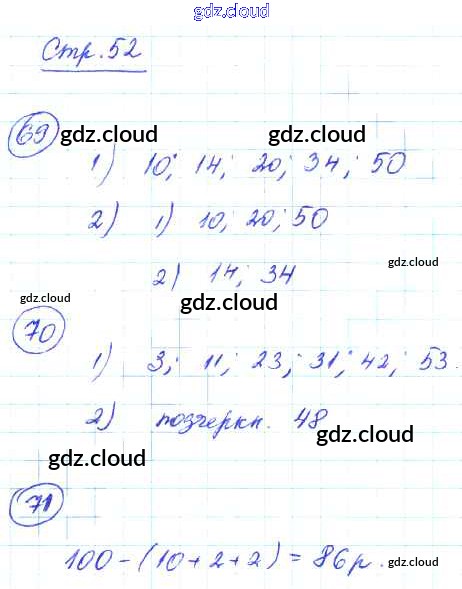 gdz.cloud
Стр. 52
69 gdz.cloud gdz.cloud
1) 10; 14; 20; 34; 50
2) 1) 10; 20; 50
gdz.cloud
2) 14; 34
gdz.cloud gdz.cloud
70
1) 3; 11; 23; 31; 42; 53.
2) подчеркн. 48
gdz.cloud gdz.cloud
71
100-(10+2+2)=86р. gdz.cloud